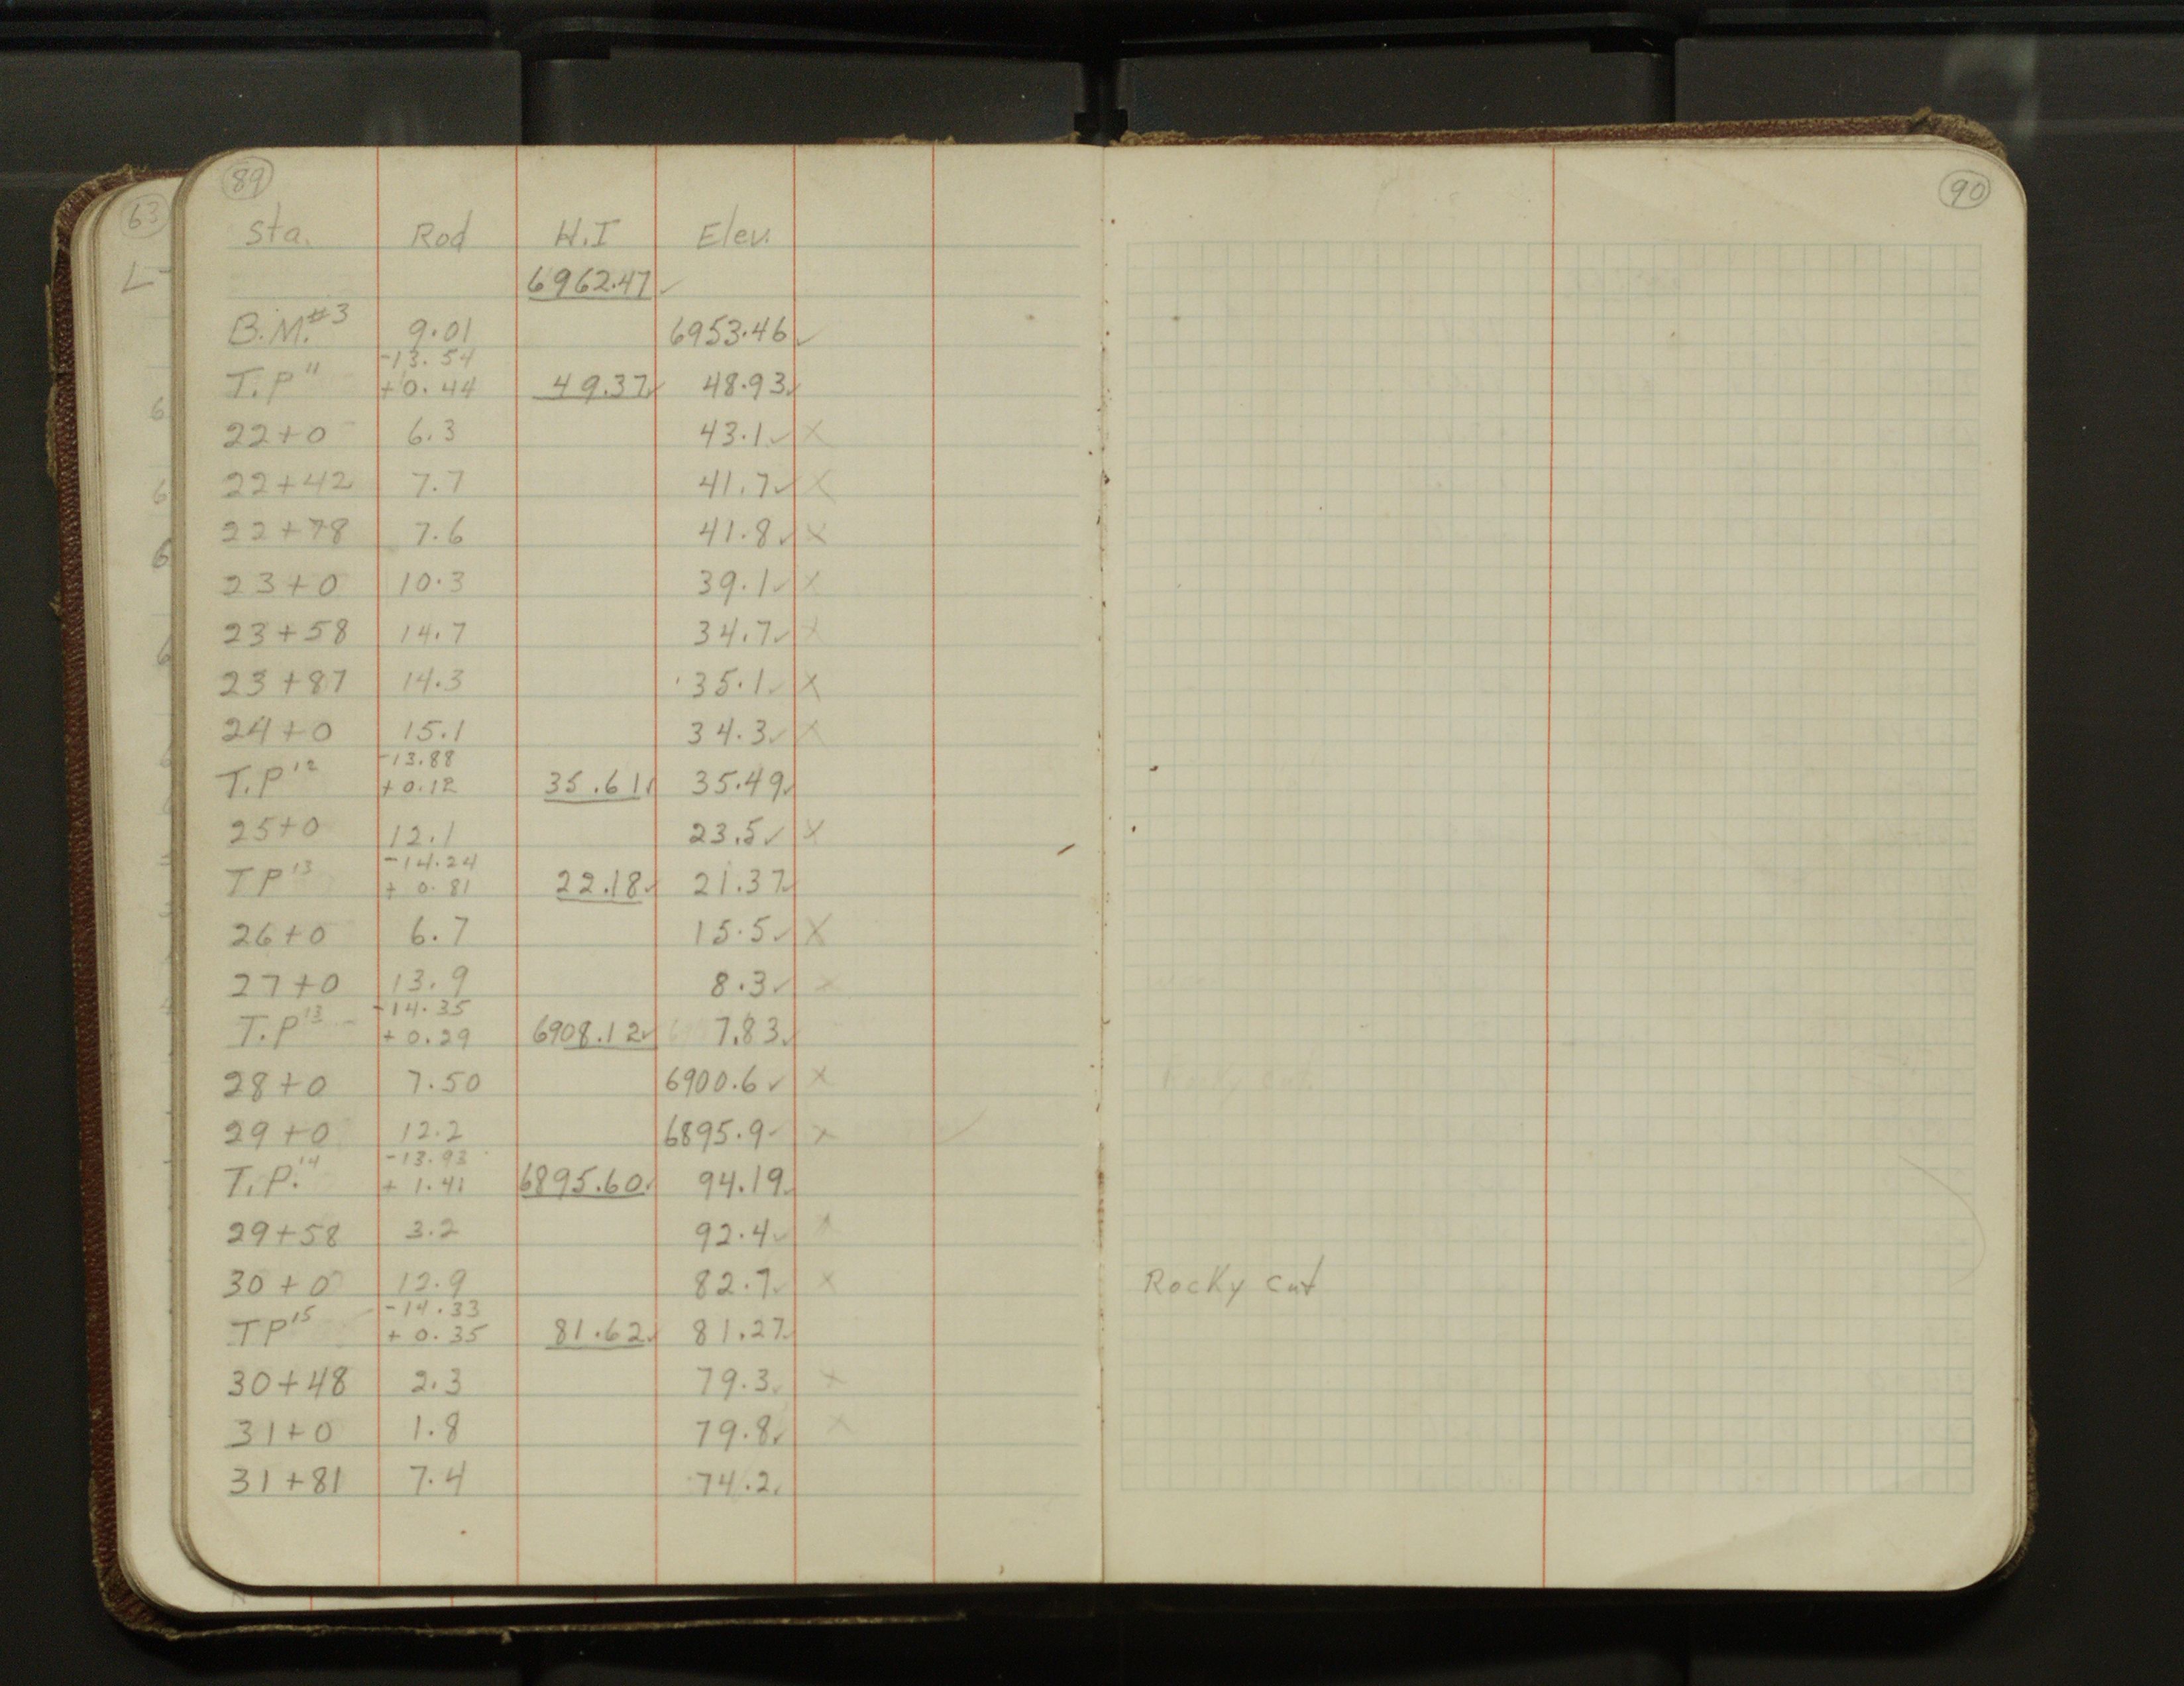 89
Sta. Rod H.I Elev.
6962.47 ✓
B.M.#3 9.01 6953.46 ✓
-13.54
T.P 11 +0.44 49.37 ✓ 48.93 ✓
22+0 6.3 43.1 ✓ X
22+42 7.7 41.7 ✓ X
22+78 7.6 41.8 ✓ X
23+0 10.3 39.1 ✓ X
23+58 14.7 34.7 ✓ X
23+87 14.3 35.1 ✓ X
24+0 15.1 34.3 ✓ X
-13.88
T.P 12 +0.12 35.61 ✓ 35.49 ✓
25+0 12.1 23.5 ✓ X
-14.24
TP 13 +0.81 22.18 ✓ 21.37 ✓
26+0 6.7 15.5 ✓ X
27+0 13.9 8.3 ✓ X
-14.35
T.P 13 +0.29 6908.12 ✓ 7.83 ✓
28+0 7.50 6900.6 ✓ X
29+0 12.2 6895.9 ✓ X
-13.93
T.P. 14 +1.41 6895.60 ✓ 94.19 ✓
29+58 3.2 92.4 ✓ X
30+0 12.9 82.7 ✓ X
-14.33
TP 15 +0.35 81.62 ✓ 81.27 ✓
30+48 2.3 79.3 ✓ X
31+0 1.8 79.8 ✓ X
31+81 7.4 74.2 ✓
90
Rocky cut
63
L
6
6
6
6